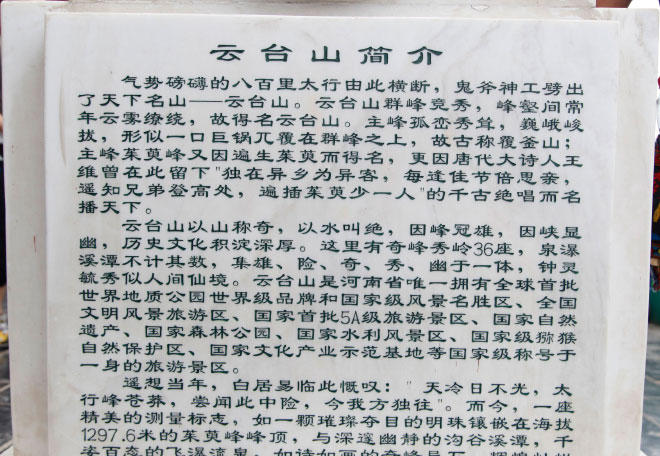 云台山简介
气势磅礴的八百里太行由此横断，鬼斧神工劈出
了天下名山——云台山。云台山群峰竞秀，峰壑间常
年云雾缭绕，故得名云台山。主峰孤峦秀耸，巍峨峻
拔，形似一口巨锅兀覆在群峰之上，故古称覆釜山；
主峰茱萸峰又因遍生茱萸而得名，更因唐代大诗人王
维曾在此留下"独在异乡为异客，每逢佳节倍思亲，
遥知兄弟登高处，遍插茱萸少一人"的千古绝唱而名
播天下。
云台山以山称奇，以水叫绝，因峰冠雄，因峡显
幽，历史文化积淀深厚。这里有奇峰秀岭36座，泉瀑
溪潭不计其数，集雄、险、奇、秀、幽于一体，钟灵
毓秀似人间仙境。云台山是河南省唯一拥有全球首批
世界地质公园世界级品牌和国家级风景名胜区、全国
文明风景旅游区、国家首批5A级旅游景区、国家自然
遗产、国家森林公园、国家水利风景区、国家级猕猴
自然保护区、国家文化产业示范基地等国家级称号于
一身的旅游景区。
遥想当年，白居易临此慨叹："天冷日不光，太
行峰苍莽，尝闻此中险，今我方独往"。而今，一座
精美的测量标志，如一颗璀璨夺目的明珠镶嵌在海拔
1297.6米的茱萸峰峰顶，与深邃幽静的沟谷溪潭，千
姿百态的飞瀑流泉，如诗如画的奇峰异石